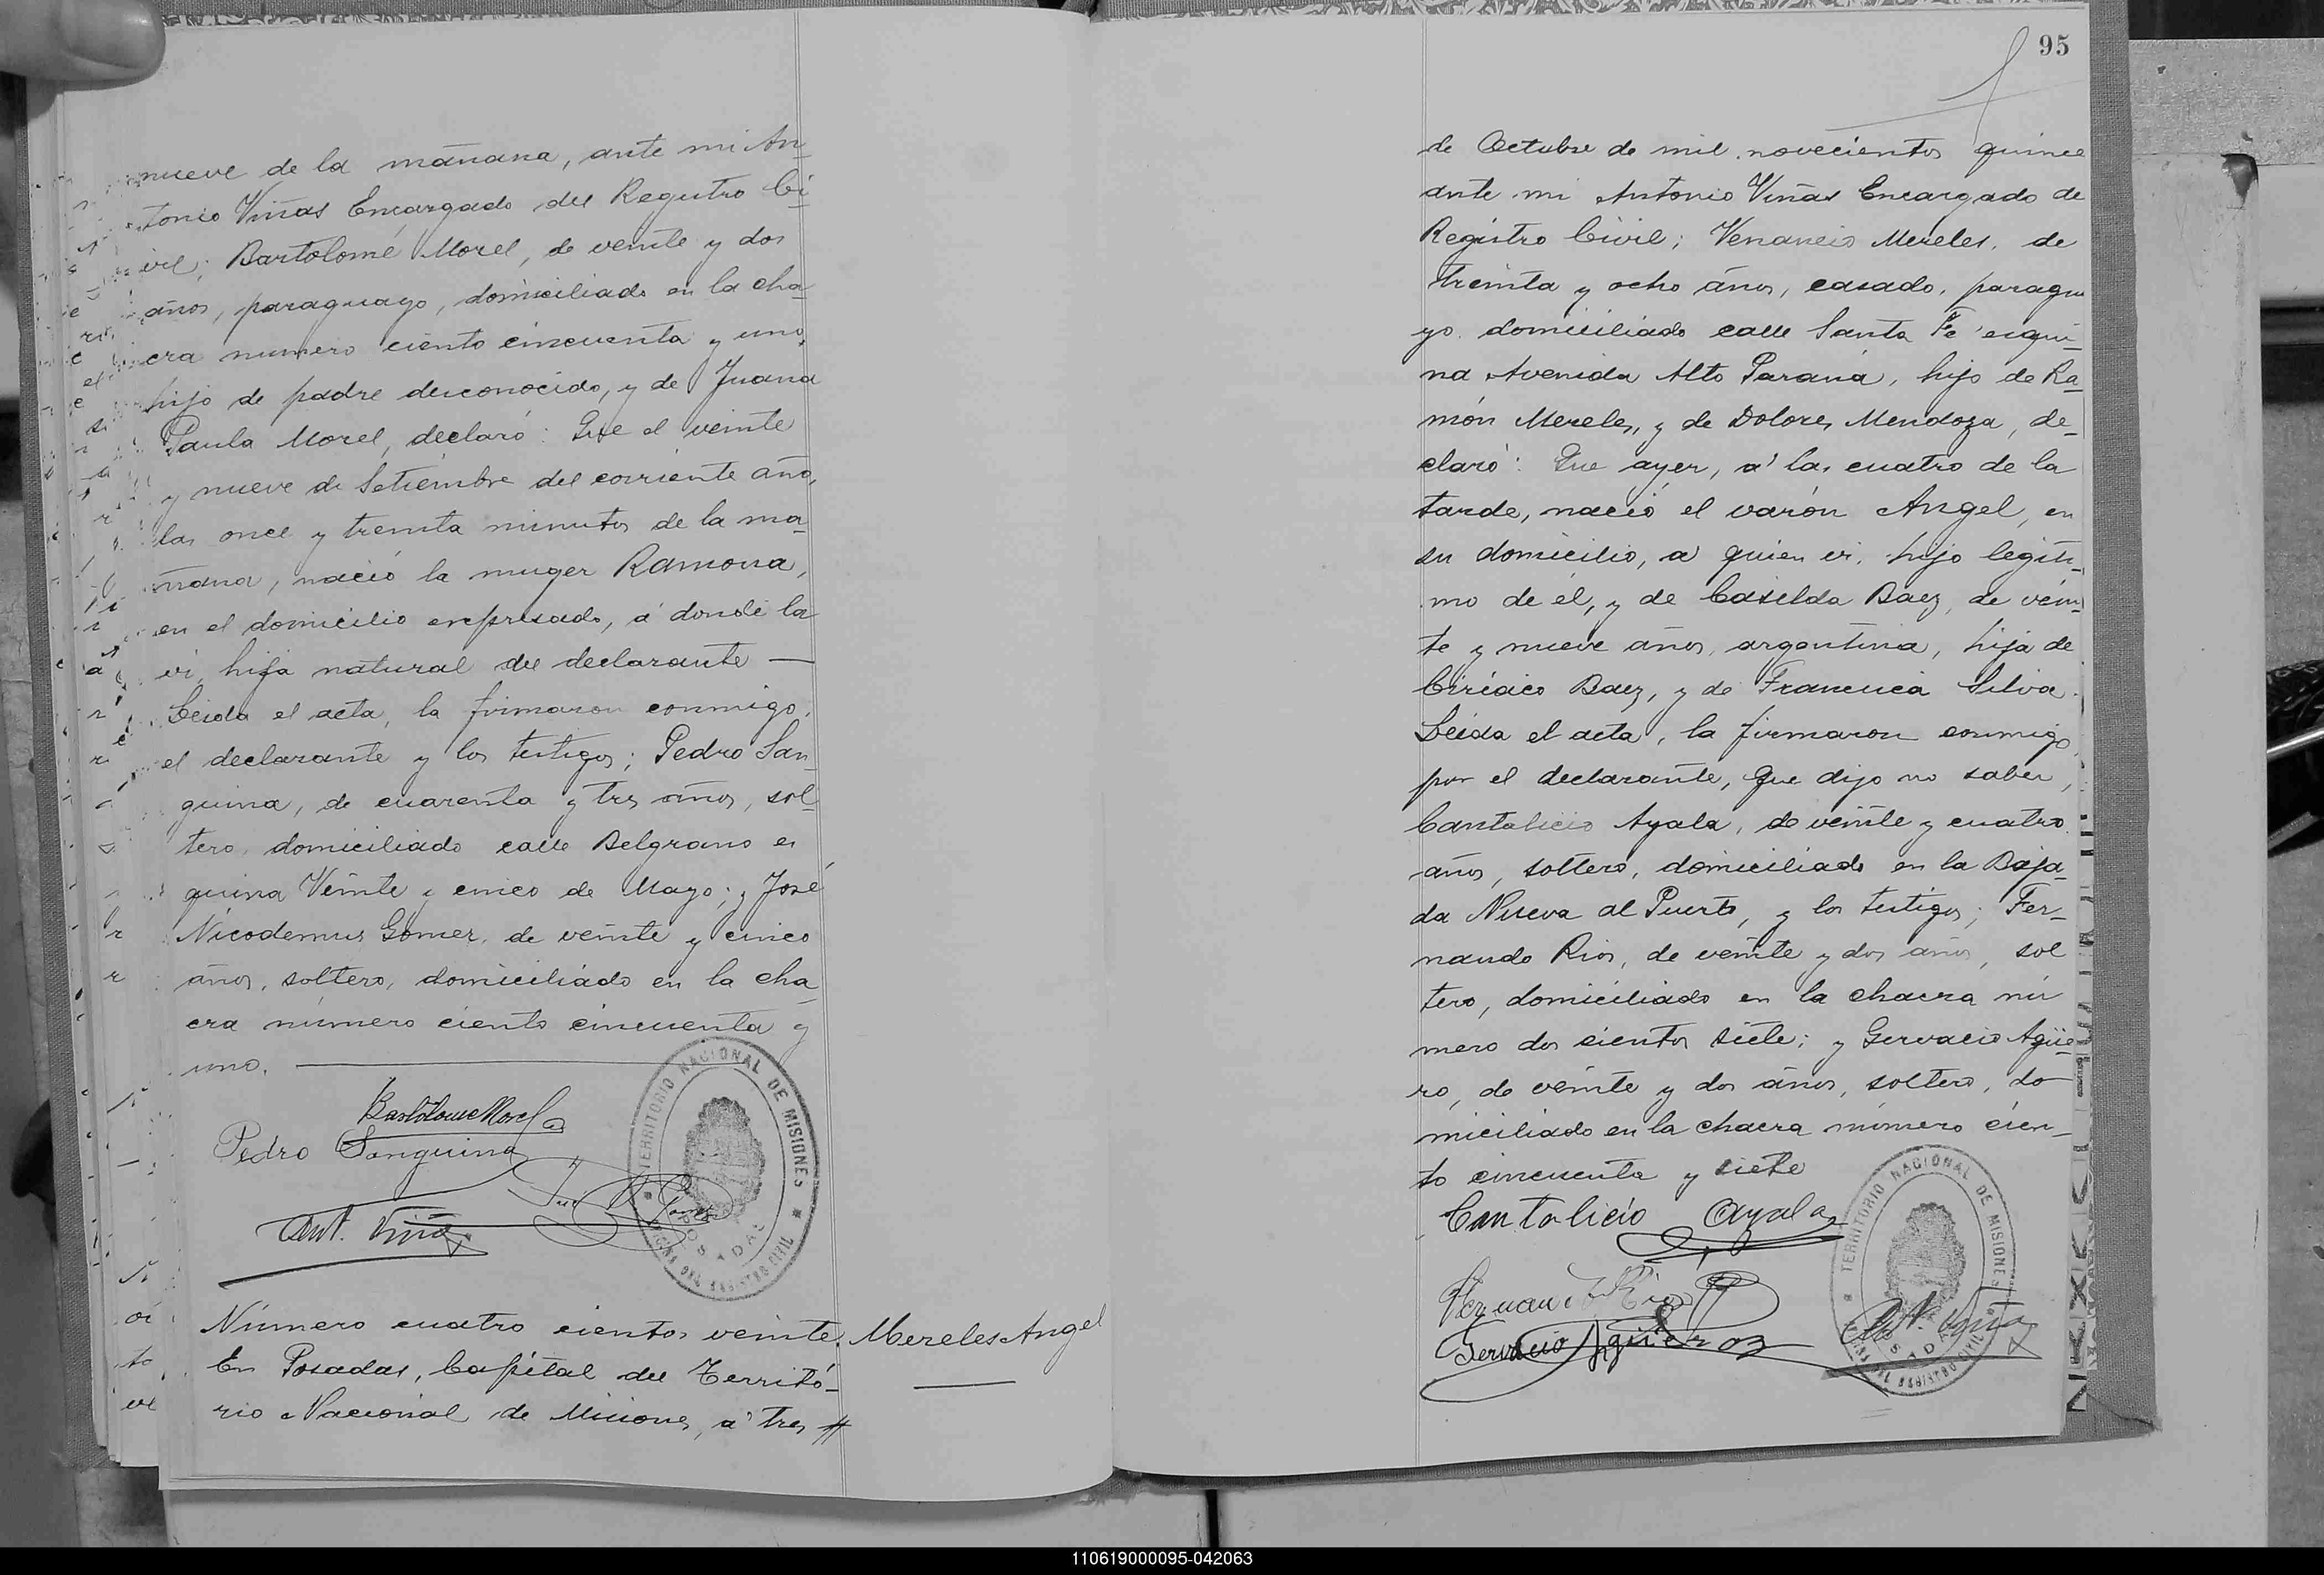 nueve de la mañana, ante mi An-
tonio Viñas Encargado del Registro Ci-
vil; Bartolomé Morel, de veinte y dos
años, paraguayo, domiciliado en la cha-
cra numero ciento cincuenta y uno,
hijo de padre desconocido, y de Juana
Paula Morel, declaró: Que el veinte
y nueve de Setiembre del corriente año,
las once y treinta minutos de la ma-
ñana, nació la muger Ramona,
en el domicilio expresado, á donde la
vi, hija natural del declarante —
Leida el acta, la firmaron conmigo,
el declarante y los testigos; Pedro San-
guina, de cuarenta y tres años, sol-
tero, domiciliado calle Belgrano es
quina Veinte y cinco de Mayo; y José
Nicodemus Gomez, de veinte y cinco
años, soltero, domiciliado en la cha
cra número ciento cincuenta y
uno. —
Bartolome Morel
Pedro Sanguina
José N. Gomez
Ant. Viñas
TERRITORIO NACIONAL DE MISIONES
OFICINA DEL REGISTRO CIVIL
POSADAS
Número cuatro cientos veinte. Mereles Angel
En Posadas, Capital del Territó-
rio Nacional de Misiones, á tres #
95
de Octubre de mil novecientos quince
ante mi Antonio Viñas Encargado de
Registro Civil; Venancio Mereles, de
treinta y ocho años, casado, paragua
yo, domiciliado calle Santa Fé esqui-
na Avenida Alto Paraná, hijo de Ra-
món Mereles, y de Dolores Mendoza, de-
claró: Que ayer, á las cuatro de la
tarde, nació el varón Angel, en
su domicilio, a quien vi, hijo legíti-
mo de él, y de Casilda Baez, de vein-
te y nueve años, argentina, hija de
Ciriáco Baez, y de Francisca Silva.
Leida el acta, la firmaron conmigo,
por el declarante, que dijo no saber,
Cantalicio Ayala, de veinte y cuatro
años, soltero, domiciliado en la Baja-
da Nueva al Puerto, y los testigos; Fer-
nando Rios, de veinte y dos años, sol
tero, domiciliado en la chacra nú
mero dos cientos siete; y Gervacio Agüe-
ro, de veinte y dos años, soltero, do
miciliado en la chacra número cien-
to cincuenta y siete
Cantalicio Ayala
Fernando Rios
Gervacio Agüero
Ant. Viñas
TERRITORIO NACIONAL DE MISIONES
OFICINA DEL REGISTRO CIVIL
POSADAS
110619000095-042063